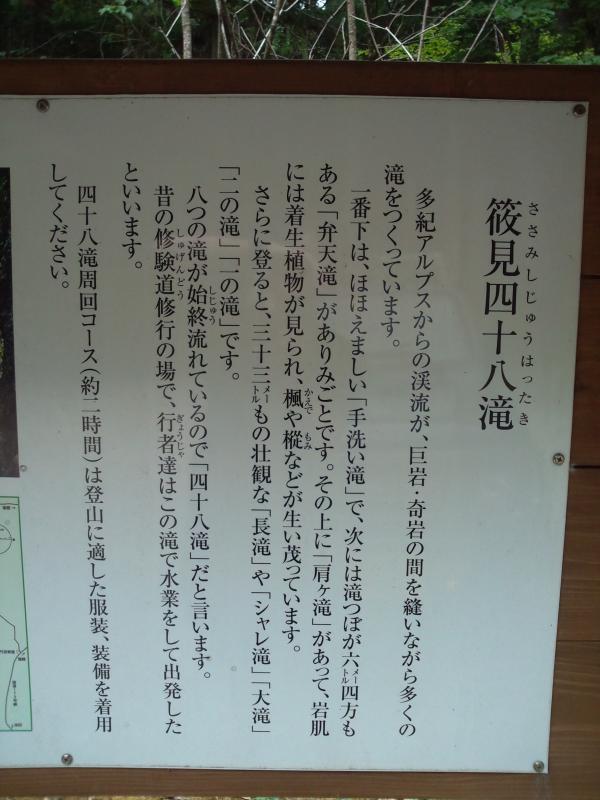 筱見四十八滝
ささみしじゅうはったき
多紀アルプスからの渓流が、巨岩・奇岩の間を縫いながら多くの
滝をつくっています。
一番下は、ほほえましい「手洗い滝」で、次には滝つぼが六メートル四方も
ある「弁天滝」がありみごとです。その上に「肩ヶ滝」があって、岩肌
には着生植物が見られ、楓や樅などが生い茂っています。
かえで
もみ
さらに登ると、三十三メートルもの壮観な「長滝」や「シャレ滝」「大滝」
「二の滝」「一の滝」です。
八つの滝が始終流れているので「四十八滝」だと言います。
しじゅう
昔の修験道修行の場で、行者達はこの滝で水業をして出発した
しゅげんどう
ぎょうじゃ
といいます。
四十八滝周回コース(約二時間)は登山に適した服装、装備を着用
してください。